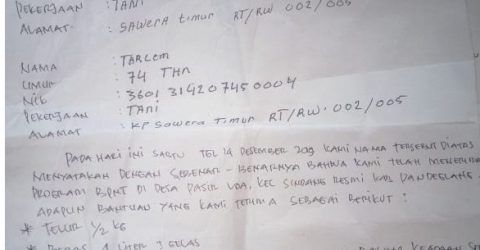 PEKERJAAN : TANI
ALAMAT : SAWERA TIMUR RT/RW 002/005
NAMA : TARLEM
UMUR : 74 THN
NIK : 3601 314207450004
PEKERJAAN : TANI
ALAMAT : KP SAWERA TIMUR RT/RW. 002/005
PADA HARI INI SABTU TGL 14 DESEMBER 2019 KAMI NAMA TERSEBUT DIATAS
MENYATAKAN DENGAN SEBENAR-BENARNYA BAHWA KAMI TELAH MENERIMA
PROGRAM BPNT DI DESA PASIR LOA, KEC SINDANG RESMI KAB PANDEGLANG.
ADAPUN BANTUAN YANG KAMI TERIMA SEBAGAI BERIKUT :
* TELUR 1/2 KG
* BERAS 4 LITER 3 GELAS